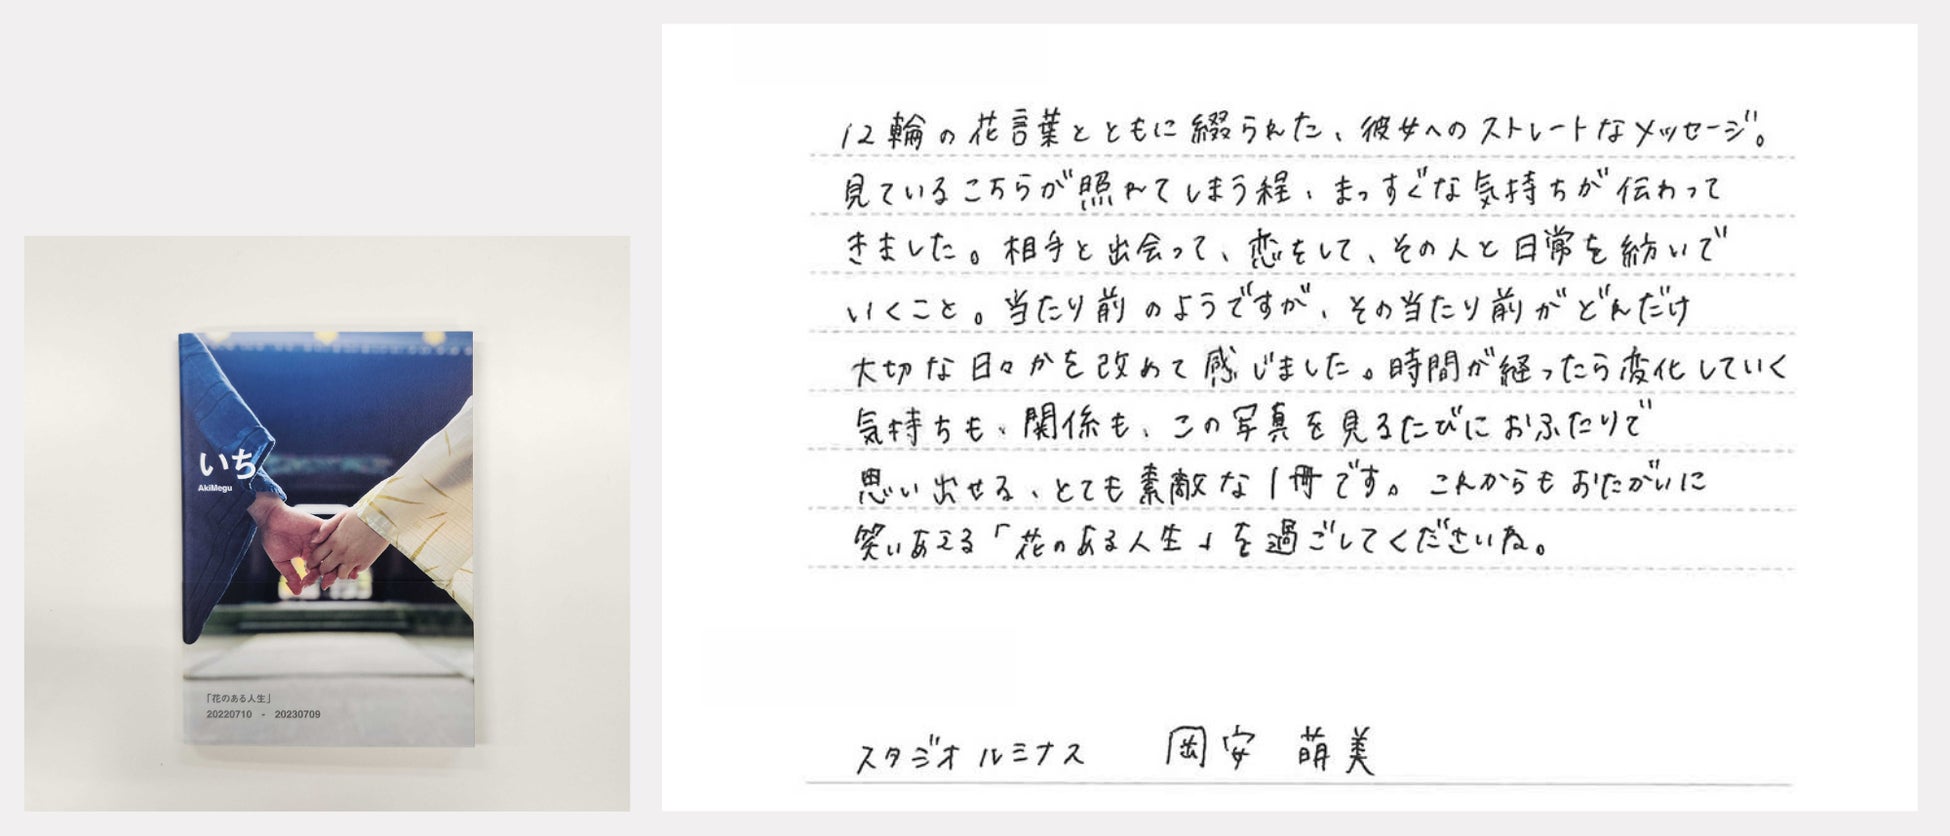 いち
AkiMegu
「花のある人生」
20220710 - 20230709
12輪の花言葉とともに綴られた、彼女へのストレートなメッセージ。
見ているこちらが照れてしまう程、まっすぐな気持ちが伝わって
きました。相手と出会って、恋をして、その人と日常を紡いで
いくこと。当たり前のようですが、その当たり前がどんだけ
大切な日々かを改めて感じました。時間が経ったら変化していく
気持ちも、関係も、この写真を見るたびにおふたりで
思い出せる、とても素敵な1冊です。これからもおたがいに
笑いあえる「花のある人生」を過ごしてくださいね。
スタジオルミナス 岡安 萌美